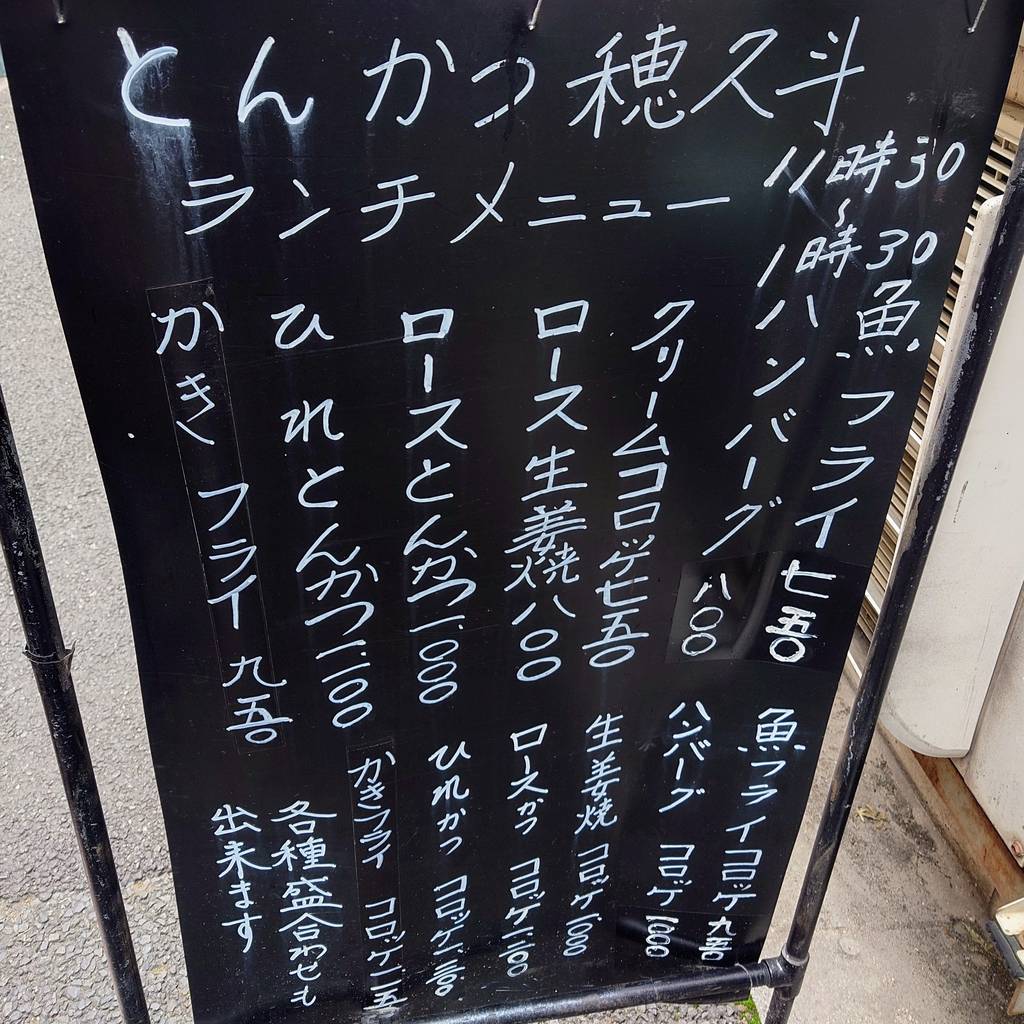 とんかつ穂久斗
ランチメニュー
11時30
〜
1時30
魚フライ 七五〇
ハンバーグ 八〇〇
クリームコロッケ七五〇
ロース生姜焼八〇〇
ロースとんかつ一、〇〇〇
ひれとんかつ一、一〇〇
かきフライ 九五〇
魚フライコロッケ九五〇
ハンバーグ コロッケ一、〇〇〇
生姜焼 コロッケ一、〇〇〇
ロースかつ コロッケ一、二〇〇
ひれかつ コロッケ一、三〇〇
かきフライ コロッケ一、一五〇
各種盛合わせも
出来ます